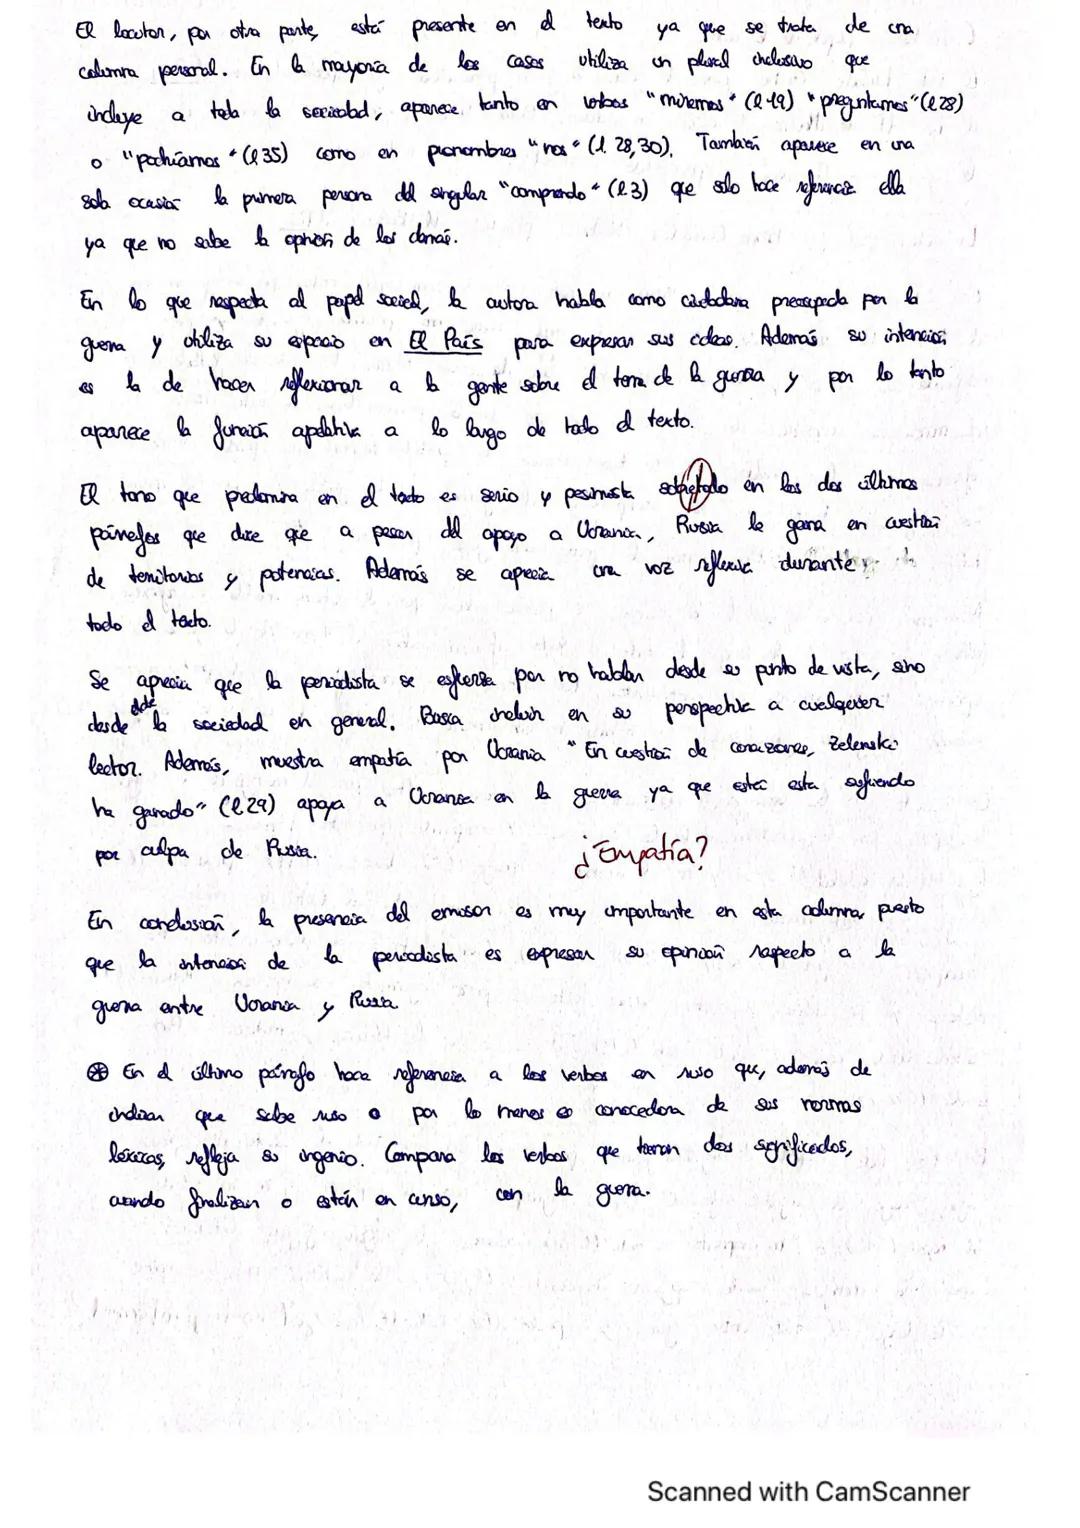 El locutor, por otra parte, está presente en el texto ya que se trata de una
columna personal. En la mayoría de los casos utiliza un plural inclusivo que
incluye a toda la sociedad, aparece tanto en verbos "miremos" (l 19) "preguntamos" (l 28)
o "podríamos" (l 35) como en pronombres "nos" (l. 28, 30). También aparece en una
sola ocasión la primera persona del singular "comprendo" (l 3) que solo hace referencia ella
ya que no sabe la opinión de los demás.
En lo que respecta al papel social, la autora habla como ciudadana preocupada por la
guerra y utiliza su espacio en El País para expresar sus ideas. Además su intención
es la de hacer reflexionar a la gente sobre el tema de la guerra y por lo tanto
aparece la función apelativa a lo largo de todo el texto.
El tono que predomina en el texto es serio y pesimista sobretodo en los dos últimos
párrafos que dice que a pesar del apoyo a Ucrania, Rusia le gana en cuestión
de territorios y potencias. Además se aprecia una voz reflexiva durante
todo el texto.
Se aprecia que la periodista se esfuerza por no hablar desde su punto de vista, sino
desde la sociedad en general. Busca incluir en su perspectiva a cualquier
lector. Además, muestra empatía por Ucrania "En cuestión de corazones, Zelenski
ha ganado" (l 29) apoya a Ucrania en la guerra ya que está esta sufriendo
por culpa de Rusia.
¿Empatía?
En conclusión, la presencia del emisor es muy importante en esta columna, puesto
que la intención de la periodista es expresar su opinión respecto a la
guerra entre Ucrania y Rusia
⊛ En el último párrafo hace referencia a los verbos en ruso que, además de
indicar que sabe ruso o por lo menos es conocedora de sus normas
léxicas, refleja su ingenio. Compara los verbos que tienen dos significados,
cuando finalizan o están en curso, con la guerra.
Scanned with CamScanner